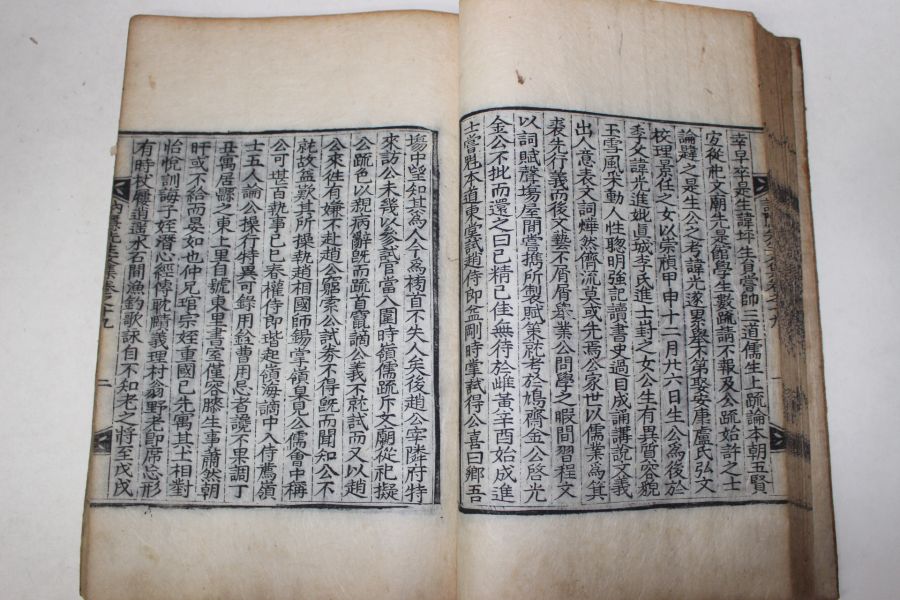 幸早卒是生諱坪生員嘗帥三道儒生上疏論本朝五賢
宜從祀文廟先是館學生數疏請不報及公疏始許之士
論韙之是生公之考諱光遂累舉不第娶安康盧氏弘文
校理景任之女以崇禎甲申十二月九六日生公爲後於
季父諱光進妣眞城李氏進士尌之女公生有異質容貌
玉雪風采動人性聡明強記讀書史過目成誦講說文義
出人意表文詞燁然儕流莫或先焉公家世以儒業爲箕
裘先行義而後文藝不屑屑擧業公問學之暇間習程文
以詞賦聲場屋間嘗携所製賦策就考於鳩齋金公啓光
金公不批而還之曰已精已佳無待於雌黃辛酉始成進
士嘗魁本道東堂試趙侍郎益剛時掌試得公喜曰鄉吾
場中望知其爲人今爲榜首不失人矣後趙公宰隣府特
來訪公未幾公參試官當入圍時嶺儒疏斥文廟從祀擬
公疏色以親病辭旣而疏首竄謫公義不就試而又以趙
公來徃有嫌不赴趙公窮索公試券不得旣而聞知公不
赴故益歎其所操執趙相國師錫掌嶺臬見公儒會中稱
公可堪百執事己巳春權侍郎瑎起嶺海謫中入侍薦嶺
士五人論公操行特異可錄用銓曹用忌者譊不果調丁
丑寓居縣之東上里自號東里書室僅容膝生事蕭然朝
旰或不給而晏如也仲兄琯宗姪重國已先寓其土相對
怡悅訓誨子姪潛心經傳耽賾義理村翁野老卽席忘形
有時杖屨逍遙水石間漁釣歌詠自不知老之將至戊戌
先生文集卷之十九
二